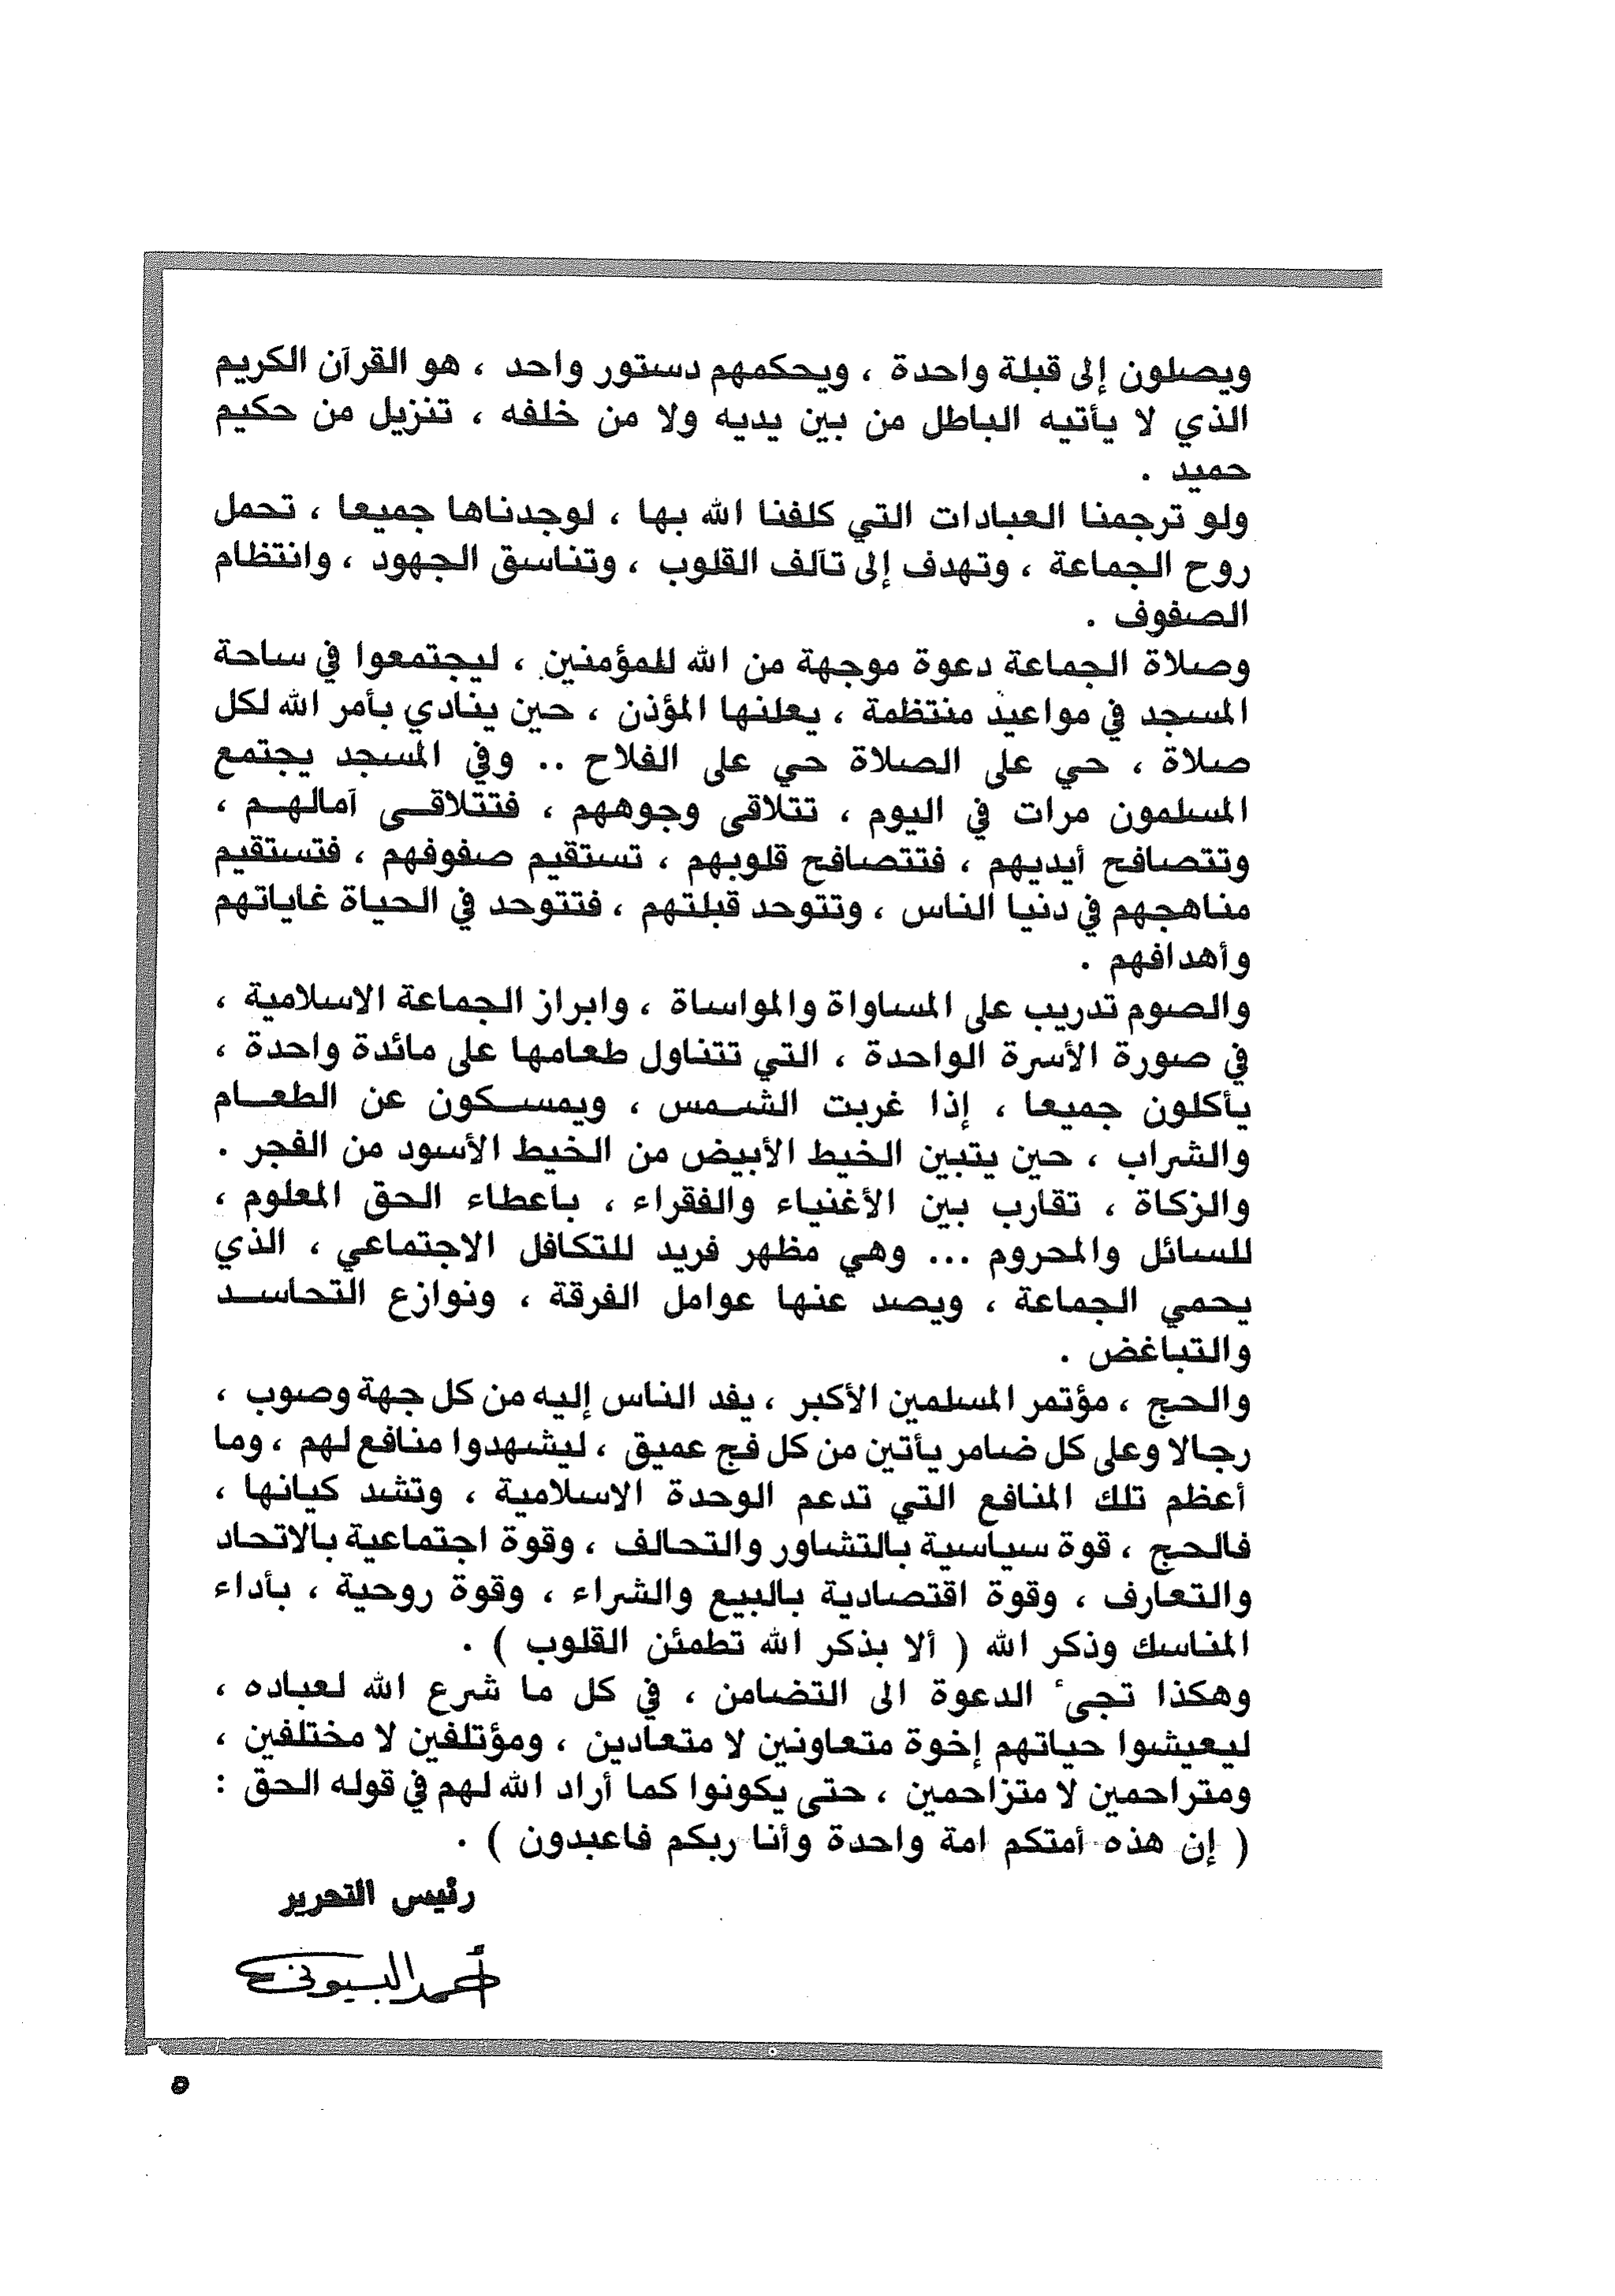 ويصلون إلى قبلة واحدة ، ويحكمهم دستور واحد ، هو القرآن الكريم
الذي لا يأتيه الباطل من بين يديه ولا من خلفه ، تنزيل من حكيم
حميد .
ولو ترجمنا العبادات التي كلفنا الله بها ، لوجدناها جميعا ، تحمل
روح الجماعة ، وتهدف إلى تآلف القلوب ، وتناسق الجهود ، وانتظام
الصفوف .
وصلاة الجماعة دعوة موجهة من الله للمؤمنين ، ليجتمعوا في ساحة
المسجد في مواعيد منتظمة ، يعلنها المؤذن ، حين ينادي بأمر الله لكل
صلاة ، حي على الصلاة حي على الفلاح .. وفي المسجد يجتمع
المسلمون مرات في اليوم ، تتلاقى وجوههم ، فتتلاقى آمالهم ،
وتتصافح أيديهم ، فتتصافح قلوبهم ، تستقيم صفوفهم ، فتستقيم
مناهجهم في دنيا الناس ، وتتوحد قبلتهم ، فتتوحد في الحياة غاياتهم
وأهدافهم .
والصوم تدريب على المساواة والمواساة ، وابراز الجماعة الاسلامية ،
في صورة الأسرة الواحدة ، التي تتناول طعامها على مائدة واحدة ،
يأكلون جميعا ، إذا غربت الشمس ، ويمسكون عن الطعام
والشراب ، حين يتبين الخيط الأبيض من الخيط الأسود من الفجر .
والزكاة ، تقارب بين الأغنياء والفقراء ، باعطاء الحق المعلوم ،
للسائل والمحروم ... وهي مظهر فريد للتكافل الاجتماعي ، الذي
يحمي الجماعة ، ويصد عنها عوامل الفرقة ، ونوازع التحاسد
والتباغض .
والحج ، مؤتمر المسلمين الأكبر ، يفد الناس إليه من كل جهة وصوب ،
رجالا وعلى كل ضامر يأتين من كل فج عميق ، ليشهدوا منافع لهم ، وما
أعظم تلك المنافع التي تدعم الوحدة الاسلامية ، وتشد كيانها ،
فالحج ، قوة سياسية بالتشاور والتحالف ، وقوة اجتماعية بالاتحاد
والتعارف ، وقوة اقتصادية بالبيع والشراء ، وقوة روحية ، بأداء
المناسك وذكر الله ( ألا بذكر الله تطمئن القلوب ) .
وهكذا تجىء الدعوة الى التضامن ، في كل ما شرع الله لعباده ،
ليعيشوا حياتهم إخوة متعاونين لا متعادين ، ومؤتلفين لا مختلفين ،
ومتراحمين لا متزاحمين ، حتى يكونوا كما أراد الله لهم في قوله الحق :
( إن هذه أمتكم امة واحدة وأنا ربكم فاعبدون ) .
رئيس التحرير
أحمد البسيوني
٥